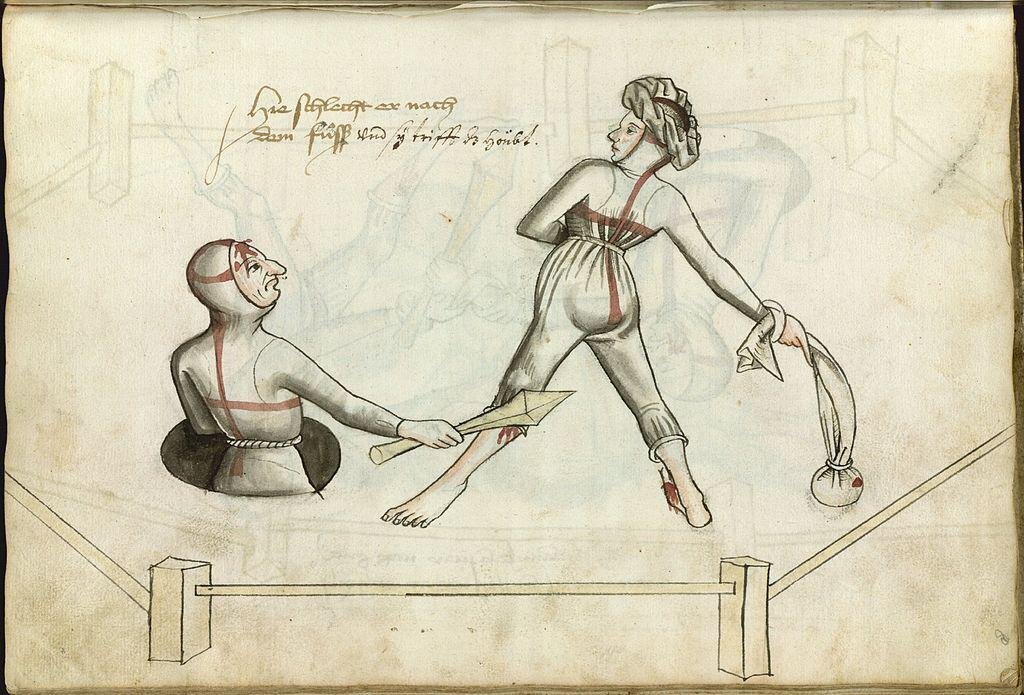 Hie schlecht er nach
dem füß vnd sy trifft dz höubt.